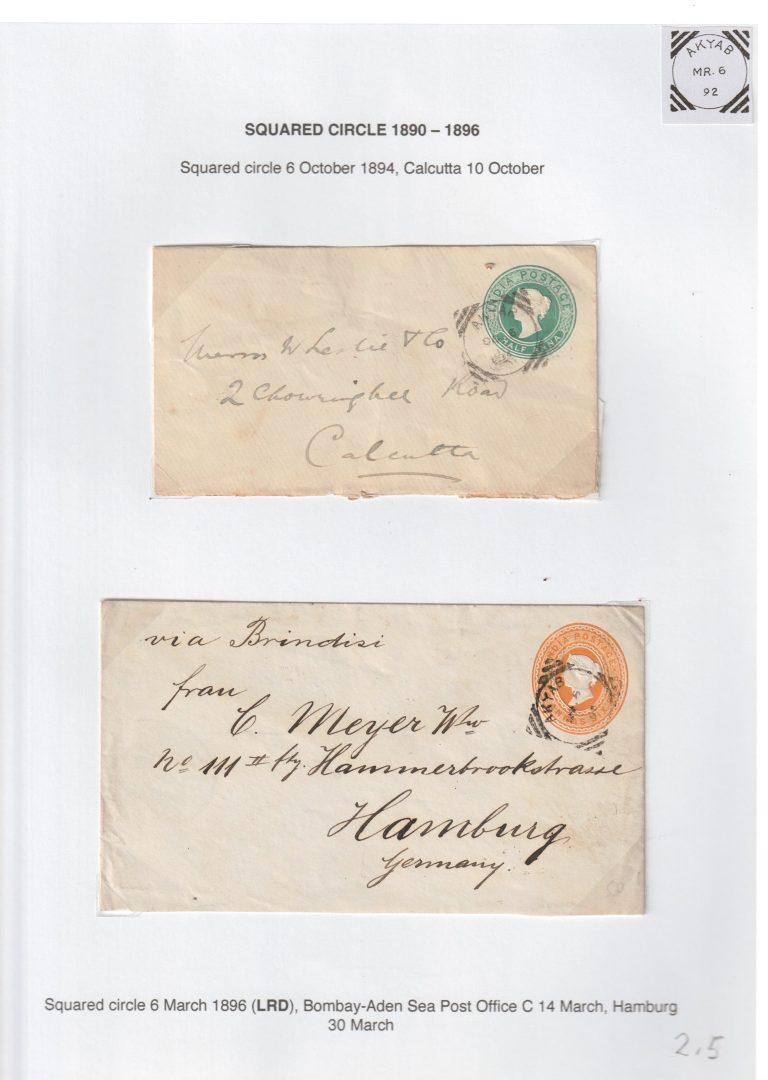 AKYAB
MR. 6
92
SQUARED CIRCLE 1890 – 1896
Squared circle 6 October 1894, Calcutta 10 October
INDIA POSTAGE
HALF ANNA
Messrs W Leslie & Co
2 Chowringhee Road
Calcutta
via Brindisi
INDIA POSTAGE
AKYAB
frau
C. Meyer Ww
No 111 II Hammerbrookstrasse
Hamburg
Germany.
Squared circle 6 March 1896 (LRD), Bombay-Aden Sea Post Office C 14 March, Hamburg
30 March
2.5